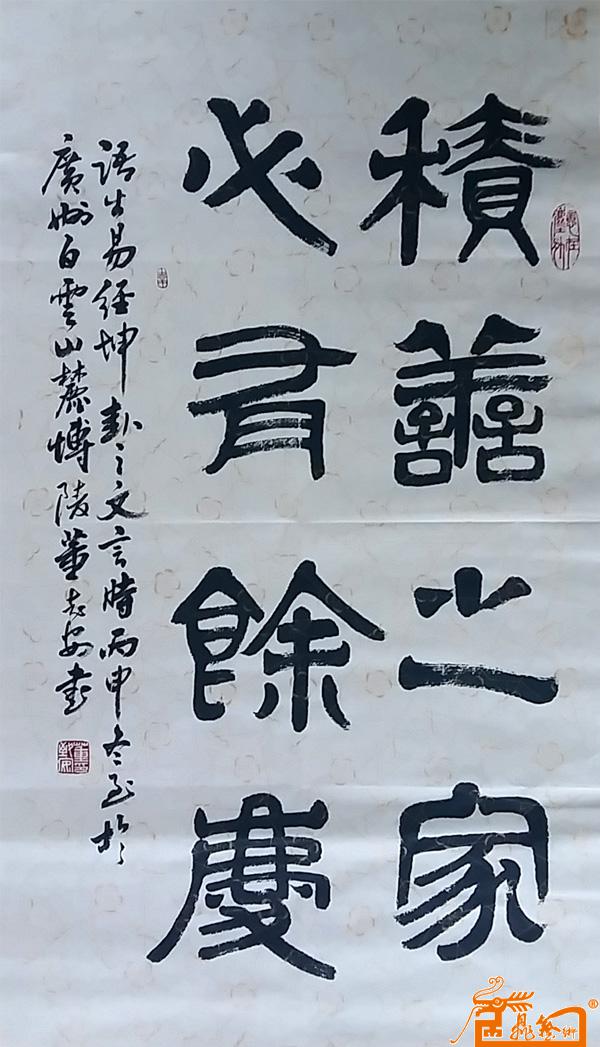 積善之家
必有餘慶
語出易經坤卦之文言時丙申冬至於
廣州白雲山麓博陵董志安書